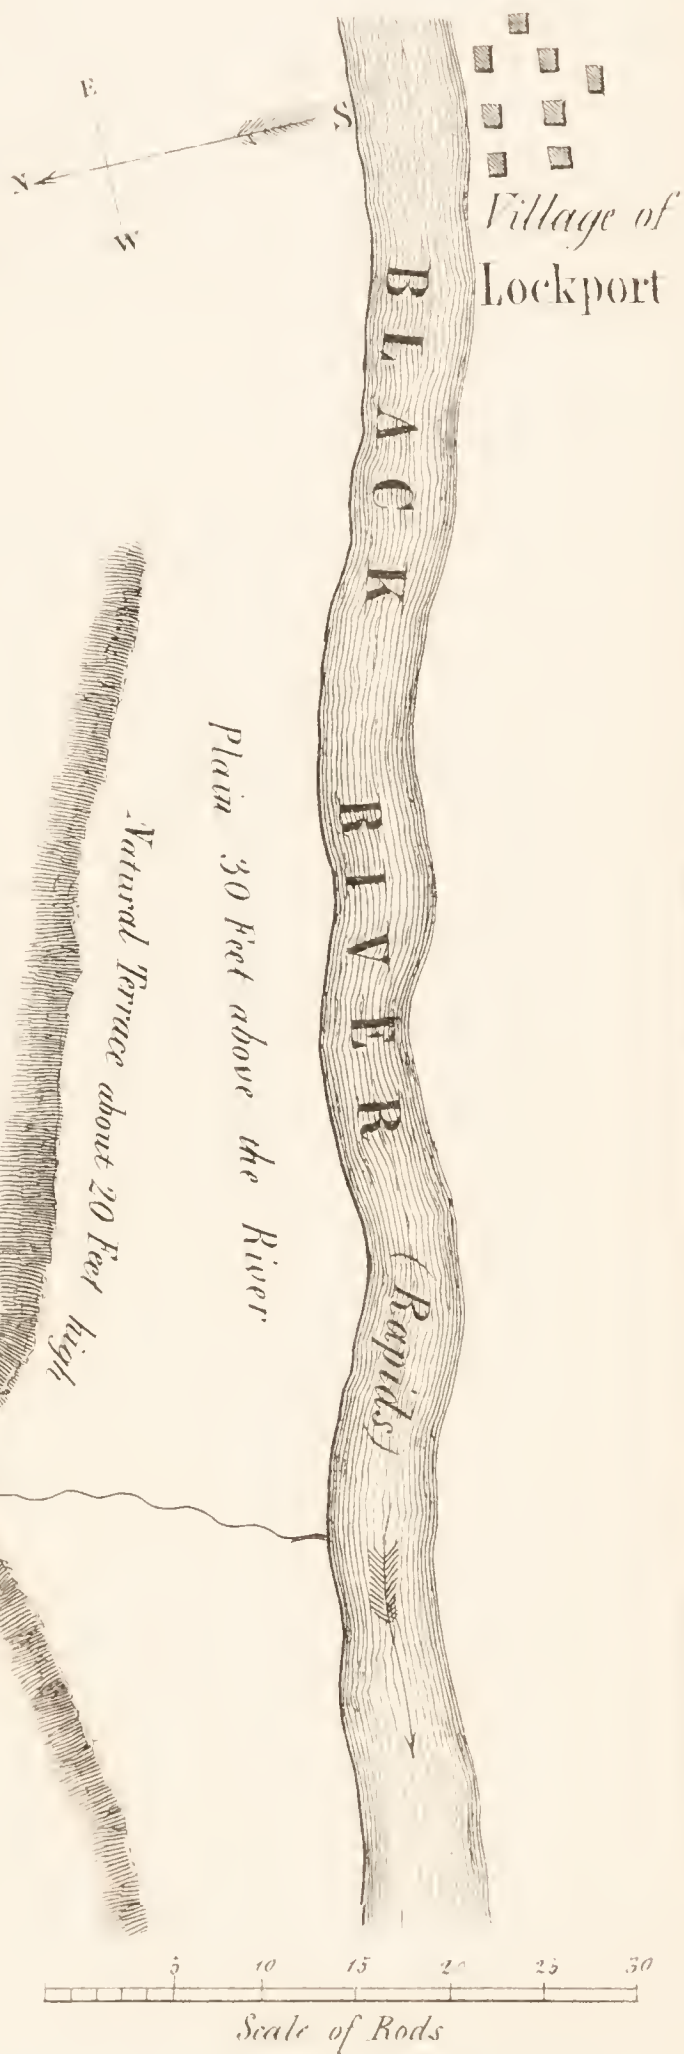 E
S
N
W
Village of
Lockport
BLACK RIVER
(Rapids)
Plain 30 Feet above the River
Natural Terrace about 20 Feet high
5 10 15 20 25 30
Scale of Rods